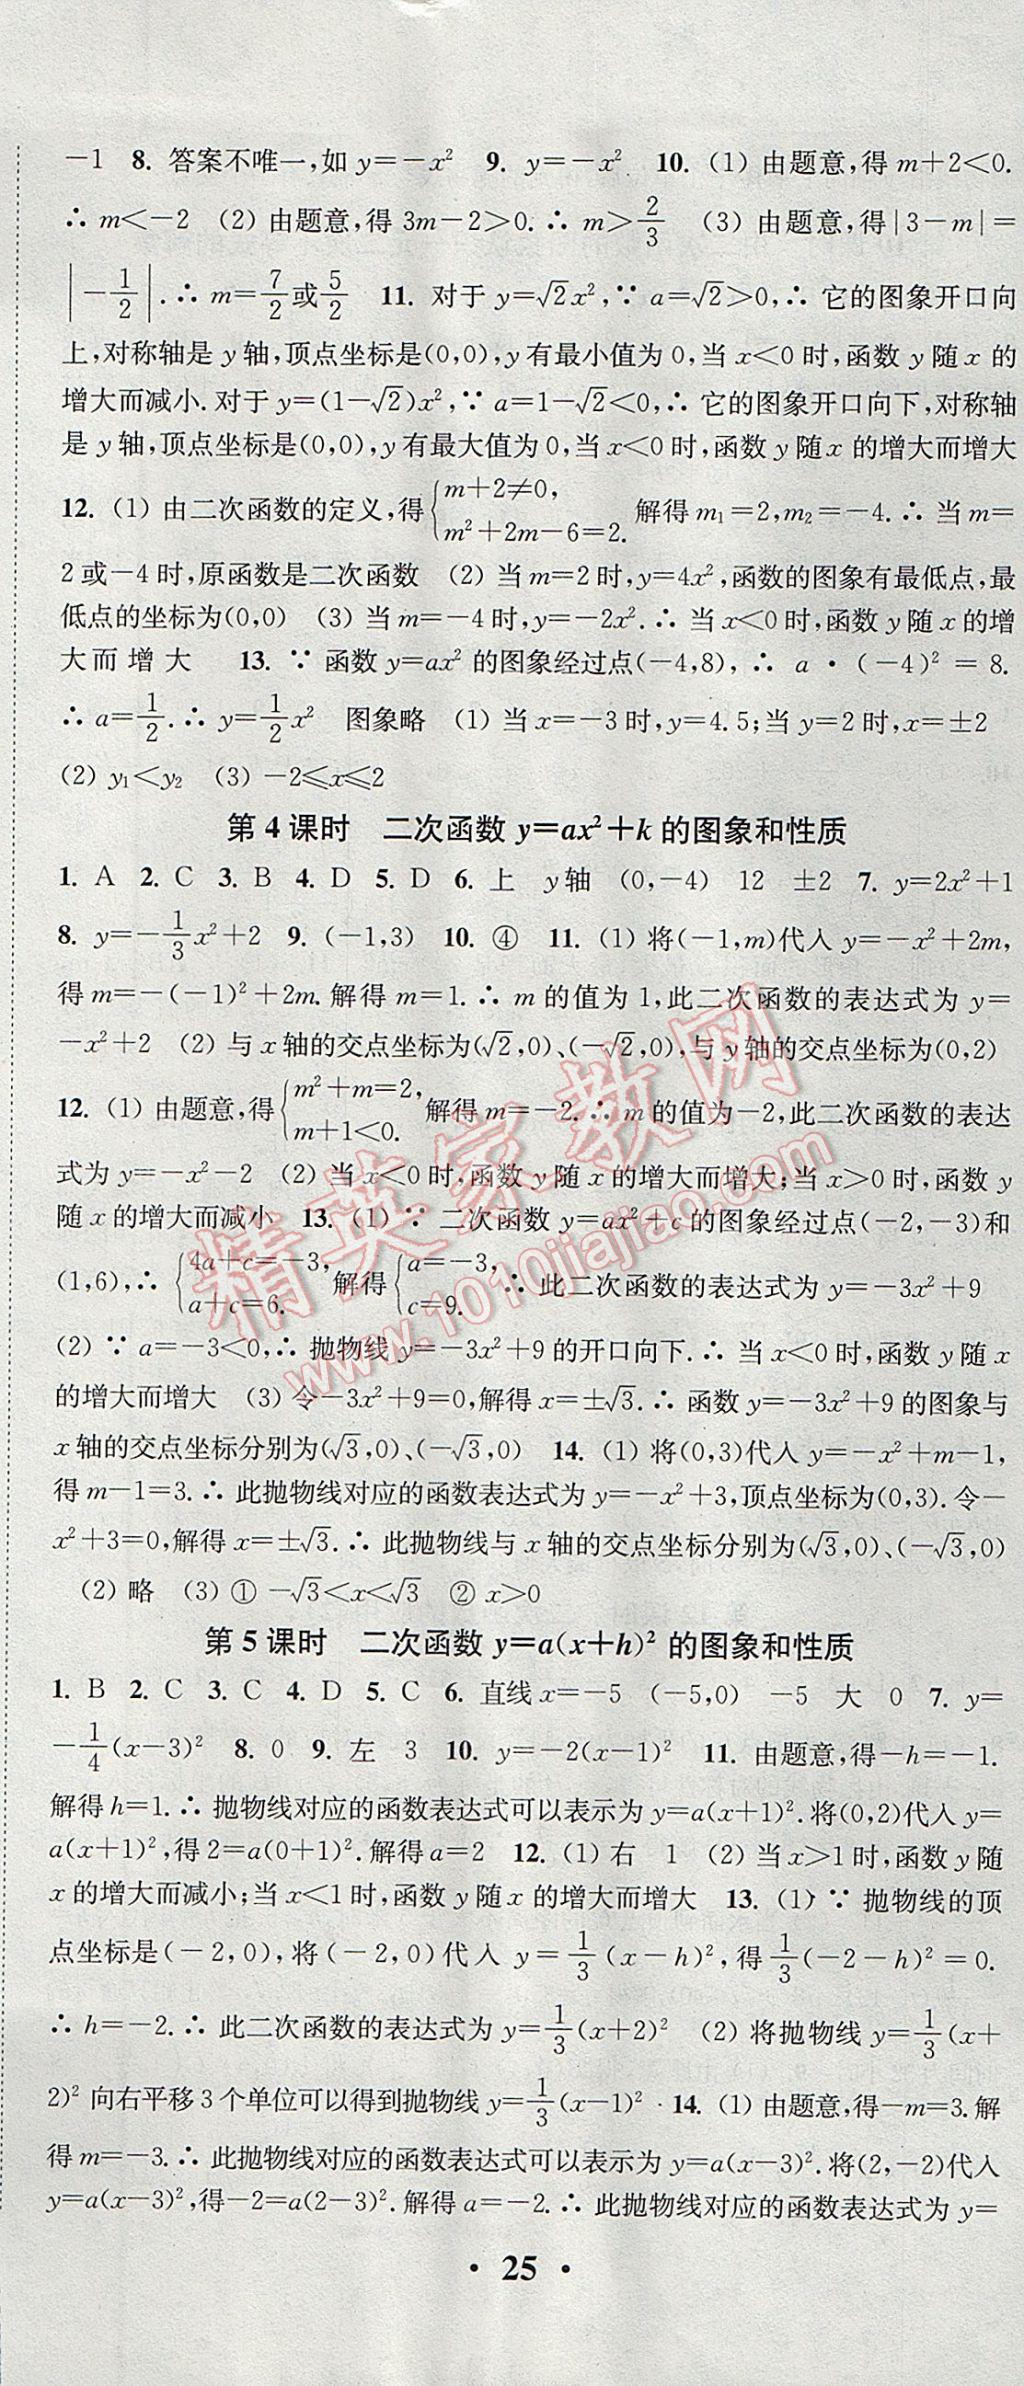 -1 8. 答案不唯一,如 y=-x² 9. y=-x² 10. (1) 由题意,得 m+2<0.
∴ m<-2 (2) 由题意,得 3m-2>0. ∴ m>2/3 (3) 由题意,得|3-m|=
|-1/2|. ∴ m=7/2或5/2 11. 对于 y=√2x²,∵ a=√2>0,∴ 它的图象开口向
上,对称轴是 y 轴,顶点坐标是(0,0),y 有最小值为 0,当 x<0 时,函数 y 随 x 的
增大而减小. 对于 y=(1-√2)x²,∵ a=1-√2<0,∴ 它的图象开口向下,对称轴
是 y 轴,顶点坐标是(0,0),y 有最大值为 0,当 x<0 时,函数 y 随 x 的增大而增大
12. (1) 由二次函数的定义,得{m+2≠0, m²+2m-6=2. 解得 m₁=2,m₂=-4. ∴ 当 m=
2 或-4 时,原函数是二次函数 (2) 当 m=2 时,y=4x²,函数的图象有最低点,最
低点的坐标为(0,0) (3) 当 m=-4 时,y=-2x². ∴ 当 x<0 时,函数 y 随 x 的增
大而增大 13. ∵ 函数 y=ax² 的图象经过点(-4,8), ∴ a·(-4)²=8.
∴ a=1/2. ∴ y=1/2x² 图象略 (1) 当 x=-3 时,y=4.5;当 y=2 时,x=±2
(2) y₁<y₂ (3) -2≤x≤2
第 4 课时 二次函数 y=ax²+k 的图象和性质
1. A 2. C 3. B 4. D 5. D 6. 上 y 轴 (0,-4) 12 ±2 7. y=2x²+1
8. y=-1/3x²+2 9. (-1,3) 10. ④ 11. (1) 将(-1,m)代入 y=-x²+2m,
得 m=-(-1)²+2m. 解得 m=1. ∴ m 的值为 1,此二次函数的表达式为 y=
-x²+2 (2) 与 x 轴的交点坐标为(√2,0)、(-√2,0),与 y 轴的交点坐标为(0,2)
12. (1) 由题意,得{m²+m=2, m+1<0. 解得 m=-2. ∴ m 的值为-2,此二次函数的表达
式为 y=-x²-2 (2) 当 x<0 时,函数 y 随 x 的增大而增大;当 x>0 时,函数 y
随 x 的增大而减小 13. (1) ∵ 二次函数 y=ax²+c 的图象经过点(-2,-3)和
(1,6),∴ {4a+c=-3, a+c=6. 解得{a=-3, c=9. ∴ 此二次函数的表达式为 y=-3x²+9
(2) ∵ a=-3<0,∴ 抛物线 y=-3x²+9 的开口向下. ∴ 当 x<0 时,函数 y 随 x
的增大而增大 (3) 令-3x²+9=0,解得 x=±√3. ∴ 函数 y=-3x²+9 的图象与
x 轴的交点坐标分别为(√3,0)、(-√3,0) 14. (1) 将(0,3)代入 y=-x²+m-1,
得 m-1=3. ∴ 此抛物线对应的函数表达式为 y=-x²+3,顶点坐标为(0,3). 令-
x²+3=0,解得 x=±√3. ∴ 此抛物线与 x 轴的交点坐标分别为(√3,0)、(-√3,0)
(2) 略 (3) ① -√3<x<√3 ② x>0
第 5 课时 二次函数 y=a(x+h)² 的图象和性质
1. B 2. C 3. C 4. D 5. C 6. 直线 x=-5 (-5,0) -5 大 0 7. y=
-1/4(x-3)² 8. 0 9. 左 3 10. y=-2(x-1)² 11. 由题意,得-h=-1.
解得 h=1. ∴ 抛物线对应的函数表达式可以表示为 y=a(x+1)². 将(0,2)代入 y=
a(x+1)²,得 2=a(0+1)². 解得 a=2 12. (1) 右 1 (2) 当 x>1 时,函数 y 随
x 的增大而减小;当 x<1 时,函数 y 随 x 的增大而增大 13. (1) ∵ 抛物线的顶
点坐标是(-2,0),将(-2,0)代入 y=1/3(x-h)²,得1/3(-2-h)²=0.
∴ h=-2. ∴ 此二次函数的表达式为 y=1/3(x+2)² (2) 将抛物线 y=1/3(x+
2)² 向右平移 3 个单位可以得到抛物线 y=1/3(x-1)² 14. (1) 由题意,得-m=3. 解
得 m=-3. ∴ 此抛物线对应的函数表达式可以表示为 y=a(x-3)². 将(2,-2)代入
y=a(x-3)²,得-2=a(2-3)². 解得 a=-2. ∴ 此抛物线对应的函数表达式为 y=
· 25 ·
精英家教网
www.1010jiajiao.com